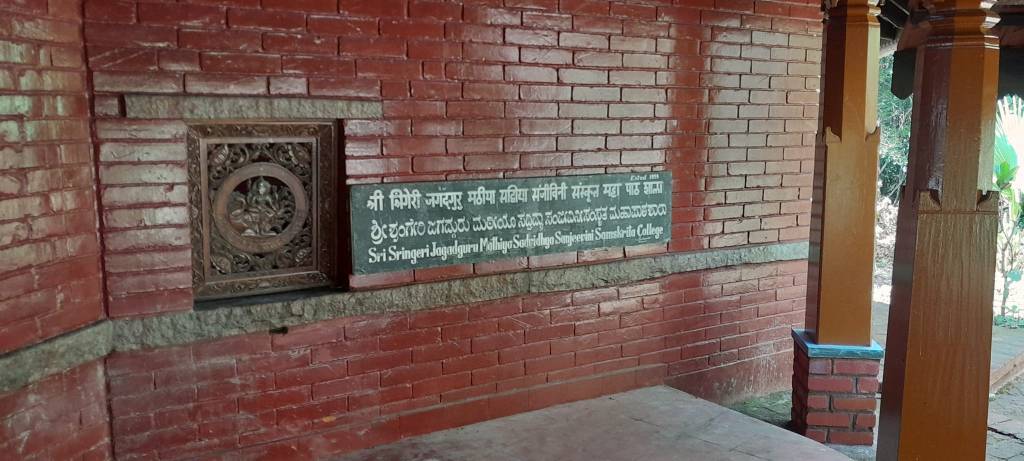 Estd 1894
श्री श्रिंगेरी जगद्गुरु मठीया सद्विद्या संजीविनी संस्कृत महा पाठ शाला
ಶ್ರೀ ಶೃಂಗೇರಿ ಜಗದ್ಗುರು ಮಠೀಯಾ ಸದ್ವಿದ್ಯಾ ಸಂಜೀವಿನೀ ಸಂಸ್ಕೃತ ಮಹಾಪಾಠಶಾಲಾ
Sri Sringeri Jagadguru Mathiya Sadvidhya Sanjeevini Samskrita College